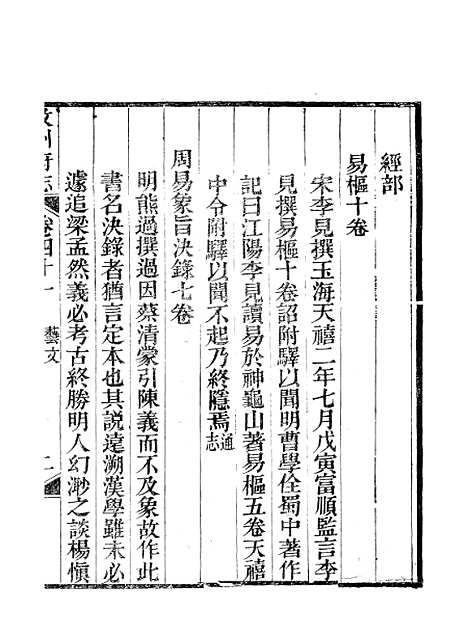 經部
易樞十卷
宋李見撰玉海天禧二年七月戊寅富順監言李
見撰易樞十卷詔附驛以聞明曹學佺蜀中著作
記曰江陽李見讀易於神龜山著易樞五卷天禧
中令附驛以聞不起乃終隱焉通志
周易象旨決錄七卷
明熊過撰過因蔡清蒙引陳義而不及象故作此
書名決錄者猶言定本也其說遠溯漢學雖未必
遽追梁孟然義必考古終勝明人幻渺之談楊慎
州府志 卷四十一 藝文 二